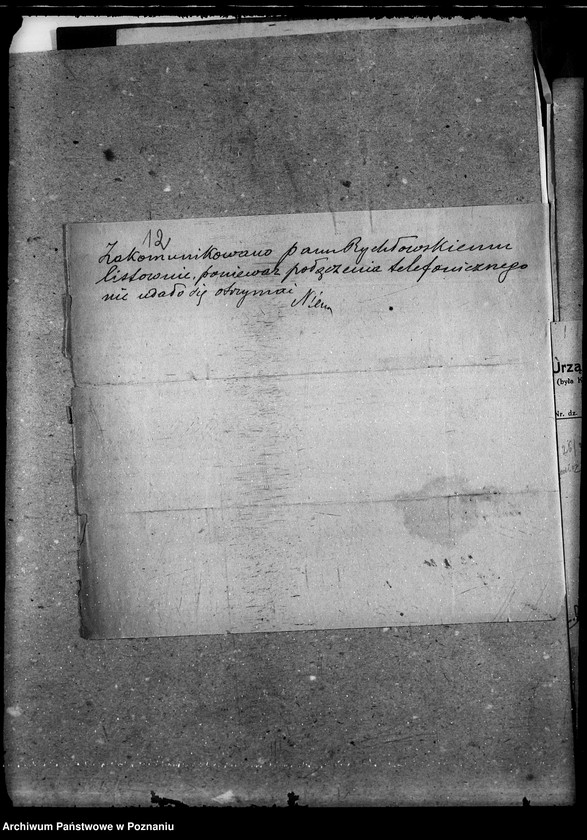 12
Zakomunikowano panu Rychłowskiemu
listownie, ponieważ połączenia telefonicznego
nie udało się otrzymać
Urzą
(była K
Nr. dz.
Archiwum Państwowe w Poznaniu